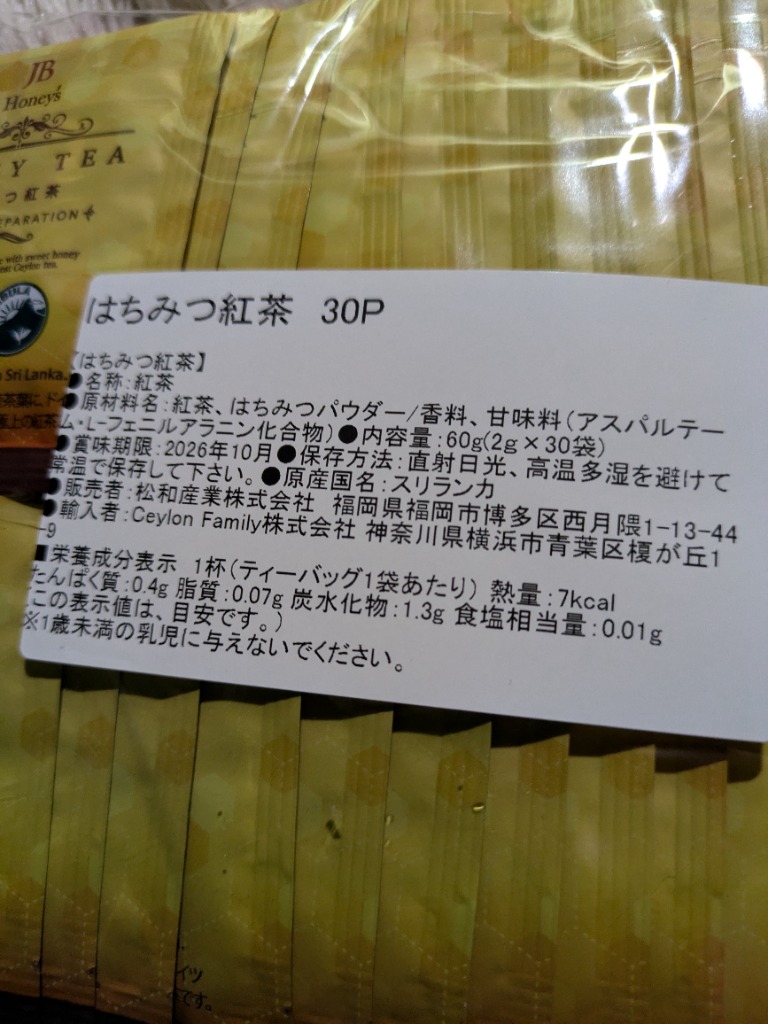 JB
Honey's
Y TEA
つ紅茶
PARATION
with sweet honey
est Ceylon tea.
Sri Lanka.
はちみつ紅茶 30P
【はちみつ紅茶】
●名称:紅茶
●原材料名:紅茶、はちみつパウダー/香料、甘味料(アスパルテー
ム・L-フェニルアラニン化合物)●内容量:60g(2g×30袋)
●賞味期限:2026年10月●保存方法:直射日光、高温多湿を避けて
常温で保存して下さい。●原産国名:スリランカ
●販売者:松和産業株式会社 福岡県福岡市博多区西月隈1-13-44
●輸入者:Ceylon Family株式会社 神奈川県横浜市青葉区榎が丘1
-9
■栄養成分表示 1杯(ティーバッグ1袋あたり) 熱量:7kcal
たんぱく質:0.4g 脂質:0.07g 炭水化物:1.3g 食塩相当量:0.01g
(この表示値は、目安です。)
※1歳未満の乳児に与えないでください。
イツ
です。